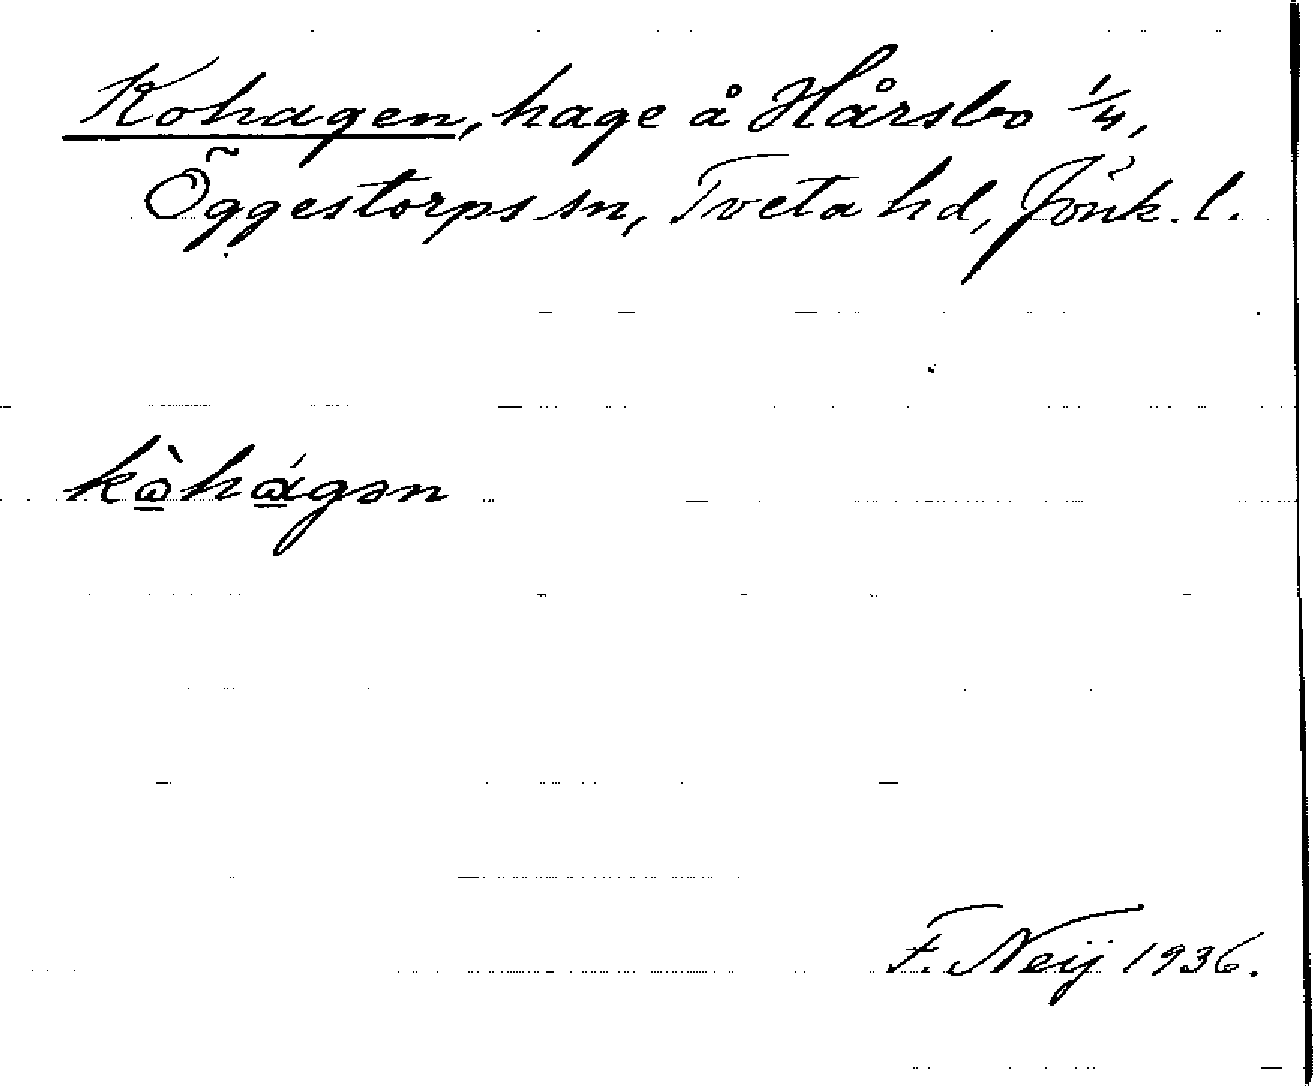 Kohagen, hage å Hårsbo 1/4,
Öggestorps sn, Tveta hd, Jönk. l.
kòhágən
F. Neij 1936.